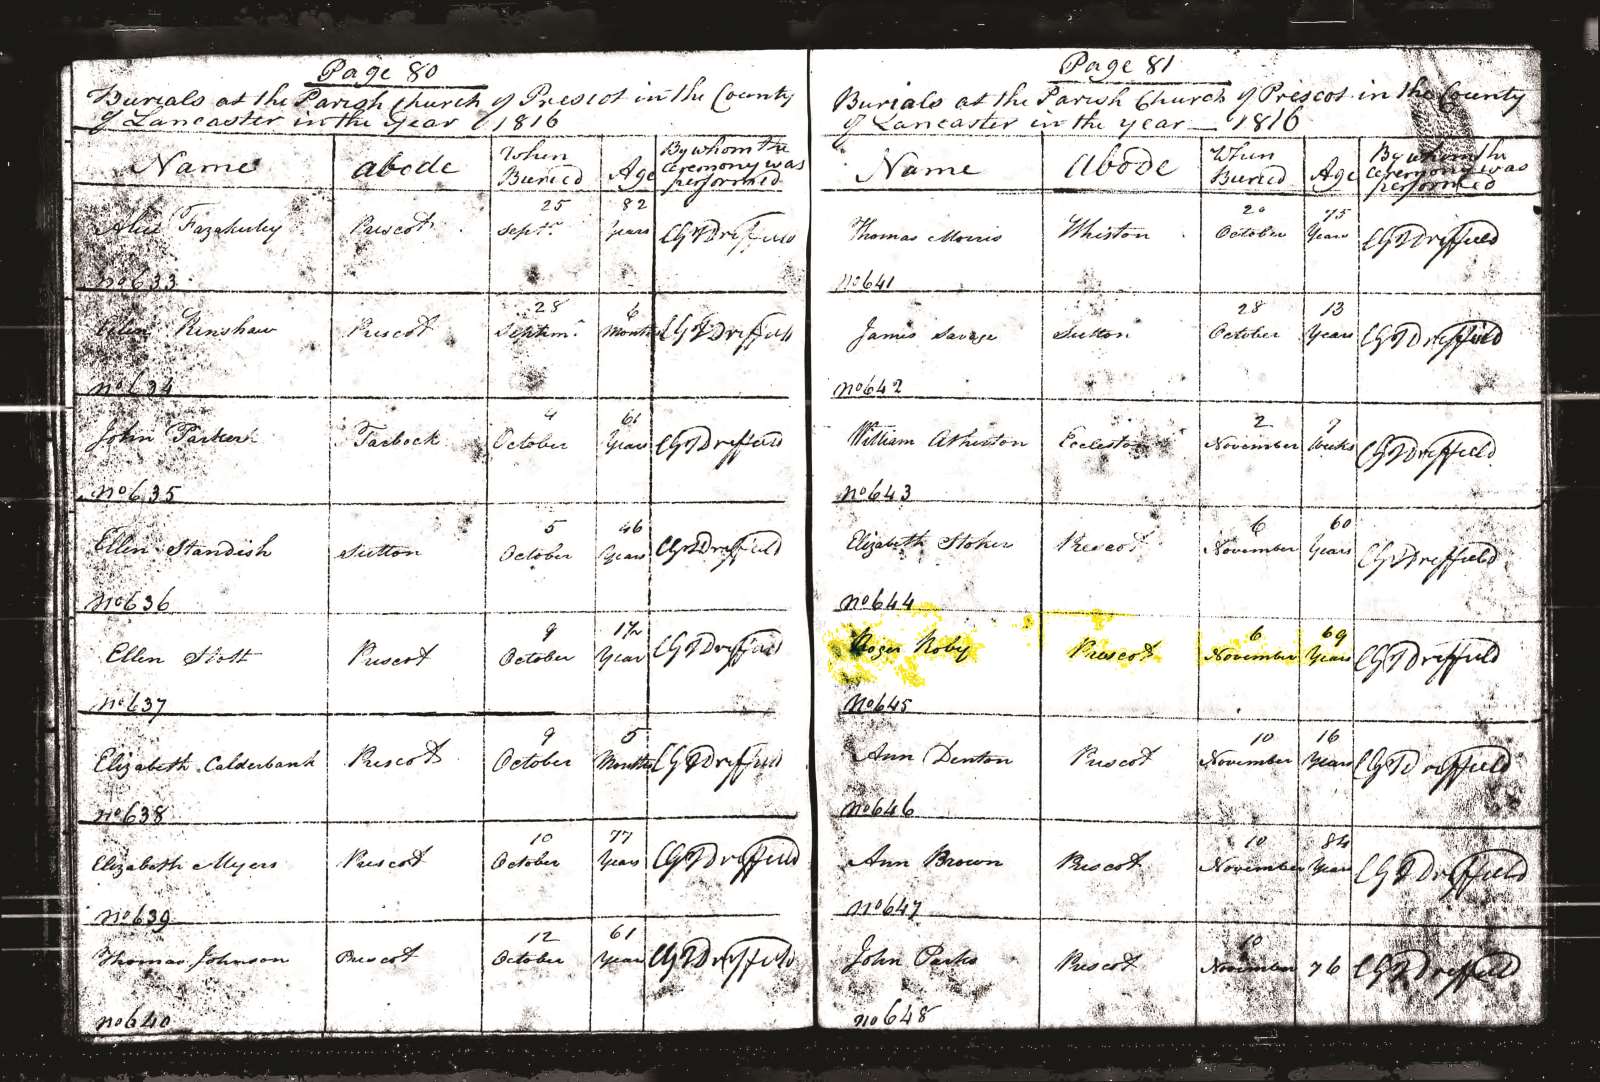 Page 80
Burials at the Parish Church of Prescot in the County
of Lancaster in the Year 1816
Name abode When Buried Age By whom the ceremony was performed
25 82
Alice Fazakerley Prescot Septr. Years CG T Driffield
No 633
28 6
Ellen Renshaw Prescot Septem. Months CG T Driffield
No 634
4 61
John Parker Tarbock October Years CG T Driffield
No 635
5 46
Ellen Standish Sutton October Years CG T Driffield
No 636
9 1½
Ellen Stott Prescot October Year CG T Driffield
No 637
9 5
Elizabeth Calderbank Prescot October Months CG T Driffield
No 638
10 77
Elizabeth Myers Prescot October Years CG T Driffield
No 639
12 61
Thomas Johnson Prescot October Year CG T Driffield
No 640
Page 81
Burials at the Parish Church of Prescot in the County
of Lancaster in the year 1816
Name abode When Buried Age By whom the ceremony was performed
20 75
Thomas Morris Whiston October Years CG T Driffield
No 641
28 13
James Savage Sutton October Years CG T Driffield
No 642
2 7
William Atherton Eccleston November Weeks CG T Driffield
No 643
6 60
Elizabeth Stoker Prescot November Years CG T Driffield
No 644
6 69
Roger Roby Prescot November Years CG T Driffield
No 645
10 16
Ann Denton Prescot November Years CG T Driffield
No 646
10 84
Ann Brown Prescot November Year CG T Driffield
No 647
10
John Parks Prescot November 76 CG T Driffield
No 648